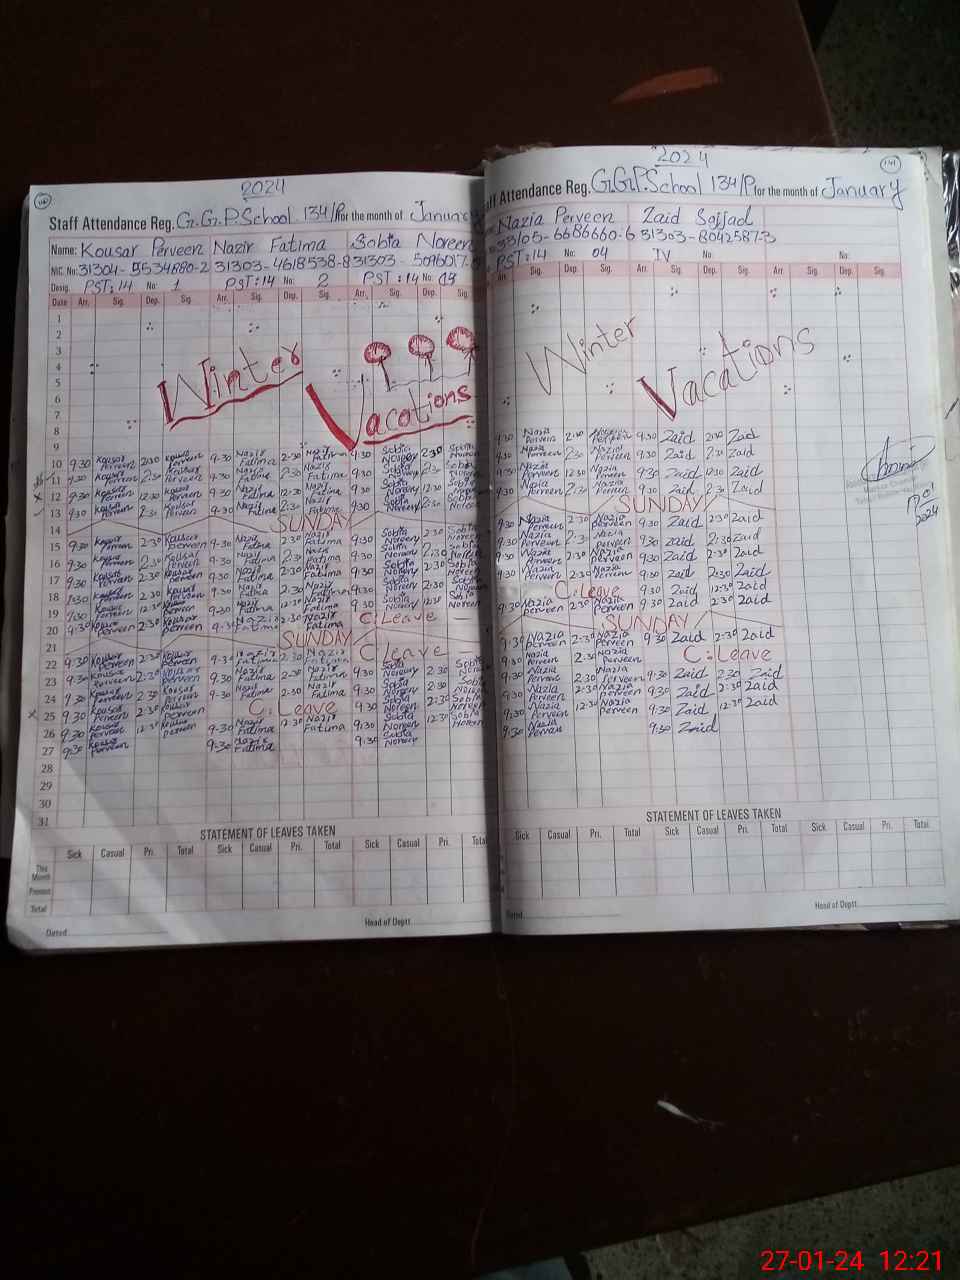 2024
Staff Attendance Reg. G.G.P.School 134/P for the month of January
Name: Kousar Perveen Nazir Fatima Sobia Noreen
NIC. No. 31304-5534880-2 31303-4618538-8 31303-5096017
Desig. PST:14 No: 1 PST:14 2 PST:14 No:
Date Arr. Sig. Dep. Sig. Arr. Sig. Dep. Sig. Arr. Sig. Dep. Sig.
1
2
3
4
5
6
7
8
9
Winter
Vacations
10 9:30 Kousar Perveen 2:30 Kousar Perveen 9:30 Nazir Fatima 2:30 Nazir Fatima 9:30 Sobia Noreen 2:30 Sobia
11 9:30 Kousar Perveen 2:30 Kousar Perveen 9:30 Nazir Fatima 2:30 Nazir Fatima 9:30 Sobia Noreen 2:30 Sobia
12 9:30 Kousar Perveen 12:30 Kousar Perveen 9:30 Nazir Fatima 12:30 Nazir Fatima 9:30 Sobia Noreen 12:30 Sobia
13 9:30 Kousar Perveen 2:30 Kousar Perveen 9:30 Nazir Fatima 2:30 Nazir Fatima 9:30 Sobia Noreen 2:30 Sobia
14 SUNDAY
15 9:30 Kousar Perveen 2:30 Kousar Perveen 9:30 Nazir Fatima 2:30 Nazir Fatima 9:30 Sobia Noreen 2:30 Sobia Noreen
16 9:30 Kousar Perveen 2:30 Kousar Perveen 9:30 Nazir Fatima 2:30 Nazir Fatima 9:30 Sobia Noreen 2:30 Sobia
17 9:30 Kousar Perveen 2:30 Kousar Perveen 9:30 Nazir Fatima 2:30 Nazir Fatima 9:30 Sobia Noreen 2:30 Sobia
18 9:30 Kousar Perveen 2:30 Kousar Perveen 9:30 Nazir Fatima 2:30 Nazir Fatima 9:30 Sobia Noreen 2:30 Sobia
19 9:30 Kousar Perveen 12:30 Kousar Perveen 9:30 Nazir Fatima 12:30 Nazir Fatima 9:30 Sobia Noreen 12:30 Sobia Noreen
20 9:30 Kousar Perveen 2:30 Kousar Perveen 9:30 Nazir Fatima 2:30 Nazir Fatima C:Leave
21 SUNDAY
22 9:30 Kousar Perveen 2:30 Kousar Perveen 9:30 Nazir Fatima 2:30 Nazir Fatima C leave
23 9:30 Kousar Perveen 2:30 Kousar Perveen 9:30 Nazir Fatima 2:30 Nazir Fatima 9:30 Sobia Noreen 2:30 Sobia
24 9:30 Kousar Perveen 2:30 Kousar Perveen 9:30 Nazir Fatima 2:30 Nazir Fatima 9:30 Sobia Noreen 2:30 Sobia
25 9:30 Kousar Perveen 2:30 Kousar Perveen C: Leave 9:30 Sobia Noreen 2:30 Sobia Noreen
26 9:30 Kousar Perveen 12:30 Kousar Perveen 9:30 Nazir Fatima 12:30 Nazir Fatima 9:30 Sobia Noreen 12:30 Sobia Noreen
27 9:30 Kousar Perveen 9:30 Nazir Fatima 9:30 Sobia Noreen
28
29
30
31
STATEMENT OF LEAVES TAKEN
Sick Casual Pri. Total Sick Casual Pri. Total Sick Casual Pri. Total
This Month
Previous
Total
Dated Head of Deptt
2024
141
Attendance Reg. G.G.P.School 134/P for the month of January
Nazia Perveen Zaid Sajjad
33105-6686660-6 31303-8042587-3
PST:14 No: 04 IV No: No:
Arr. Sig. Dep. Sig. Arr. Sig. Dep. Sig. Arr. Sig. Dep. Sig.
Winter
Vacations
9:30 Nazia Perveen 2:30 Nazia Perveen 9:30 Zaid 2:30 Zaid
9:30 Nazia Perveen 2:30 Nazia Perveen 9:30 Zaid 2:30 Zaid
9:30 Nazia Perveen 12:30 Nazia Perveen 9:30 Zaid 12:30 Zaid
9:30 Nazia Perveen 2:30 Nazia Perveen 9:30 Zaid 2:30 Zaid
SUNDAY
9:30 Nazia Perveen 2:30 Nazia Perveen 9:30 Zaid 2:30 Zaid
9:30 Nazia Perveen 2:30 Nazia Perveen 9:30 Zaid 2:30 Zaid
9:30 Nazia Perveen 2:30 Nazia Perveen 9:30 Zaid 2:30 Zaid
9:30 Nazia Perveen 2:30 Nazia Perveen 9:30 Zaid 2:30 Zaid
C:Leave 9:30 Zaid 12:30 Zaid
9:30 Nazia Perveen 2:30 Nazia Perveen 9:30 Zaid 2:30 Zaid
SUNDAY
9:30 Nazia Perveen 2:30 Nazia Perveen 9:30 Zaid 2:30 Zaid
9:30 Nazia Perveen 2:30 Nazia Perveen C:Leave
9:30 Nazia Perveen 2:30 Nazia Perveen 9:30 Zaid 2:30 Zaid
9:30 Nazia Perveen 2:30 Nazia Perveen 9:30 Zaid 2:30 Zaid
9:30 Nazia Perveen 12:30 Nazia Perveen 9:30 Zaid 12:30 Zaid
9:30 Nazia Perveen 9:30 Zaid
2024
STATEMENT OF LEAVES TAKEN
Sick Casual Pri. Total Sick Casual Pri. Total Sick Casual Pri. Total
Dated Head of Deptt
27-01-24 12:21